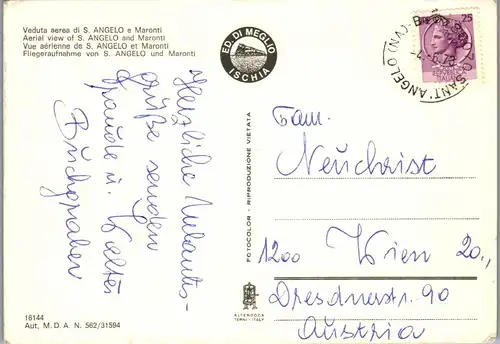 Veduta aerea di S. ANGELO e Maronti
Aerial view of S. ANGELO and Maronti
Vue aérienne de S. ANGELO et Maronti
Fliegeraufnahme von S. ANGELO und Maronti
ED. DI MEGLIO
ISCHIA
25
SANT'ANGELO (NA)
Herzliche Urlaubs-
grüße senden
Traude u. Walter
Buchgraber
FOTOCOLOR - RIPRODUZIONE VIETATA
Fam.
Neuchrist
1200 Wien 20.,
Dresdnerstr. 90
Austria
ALTEROCCA
TERNI - ITALY
16144
Aut. M. D. A. N. 562/31594